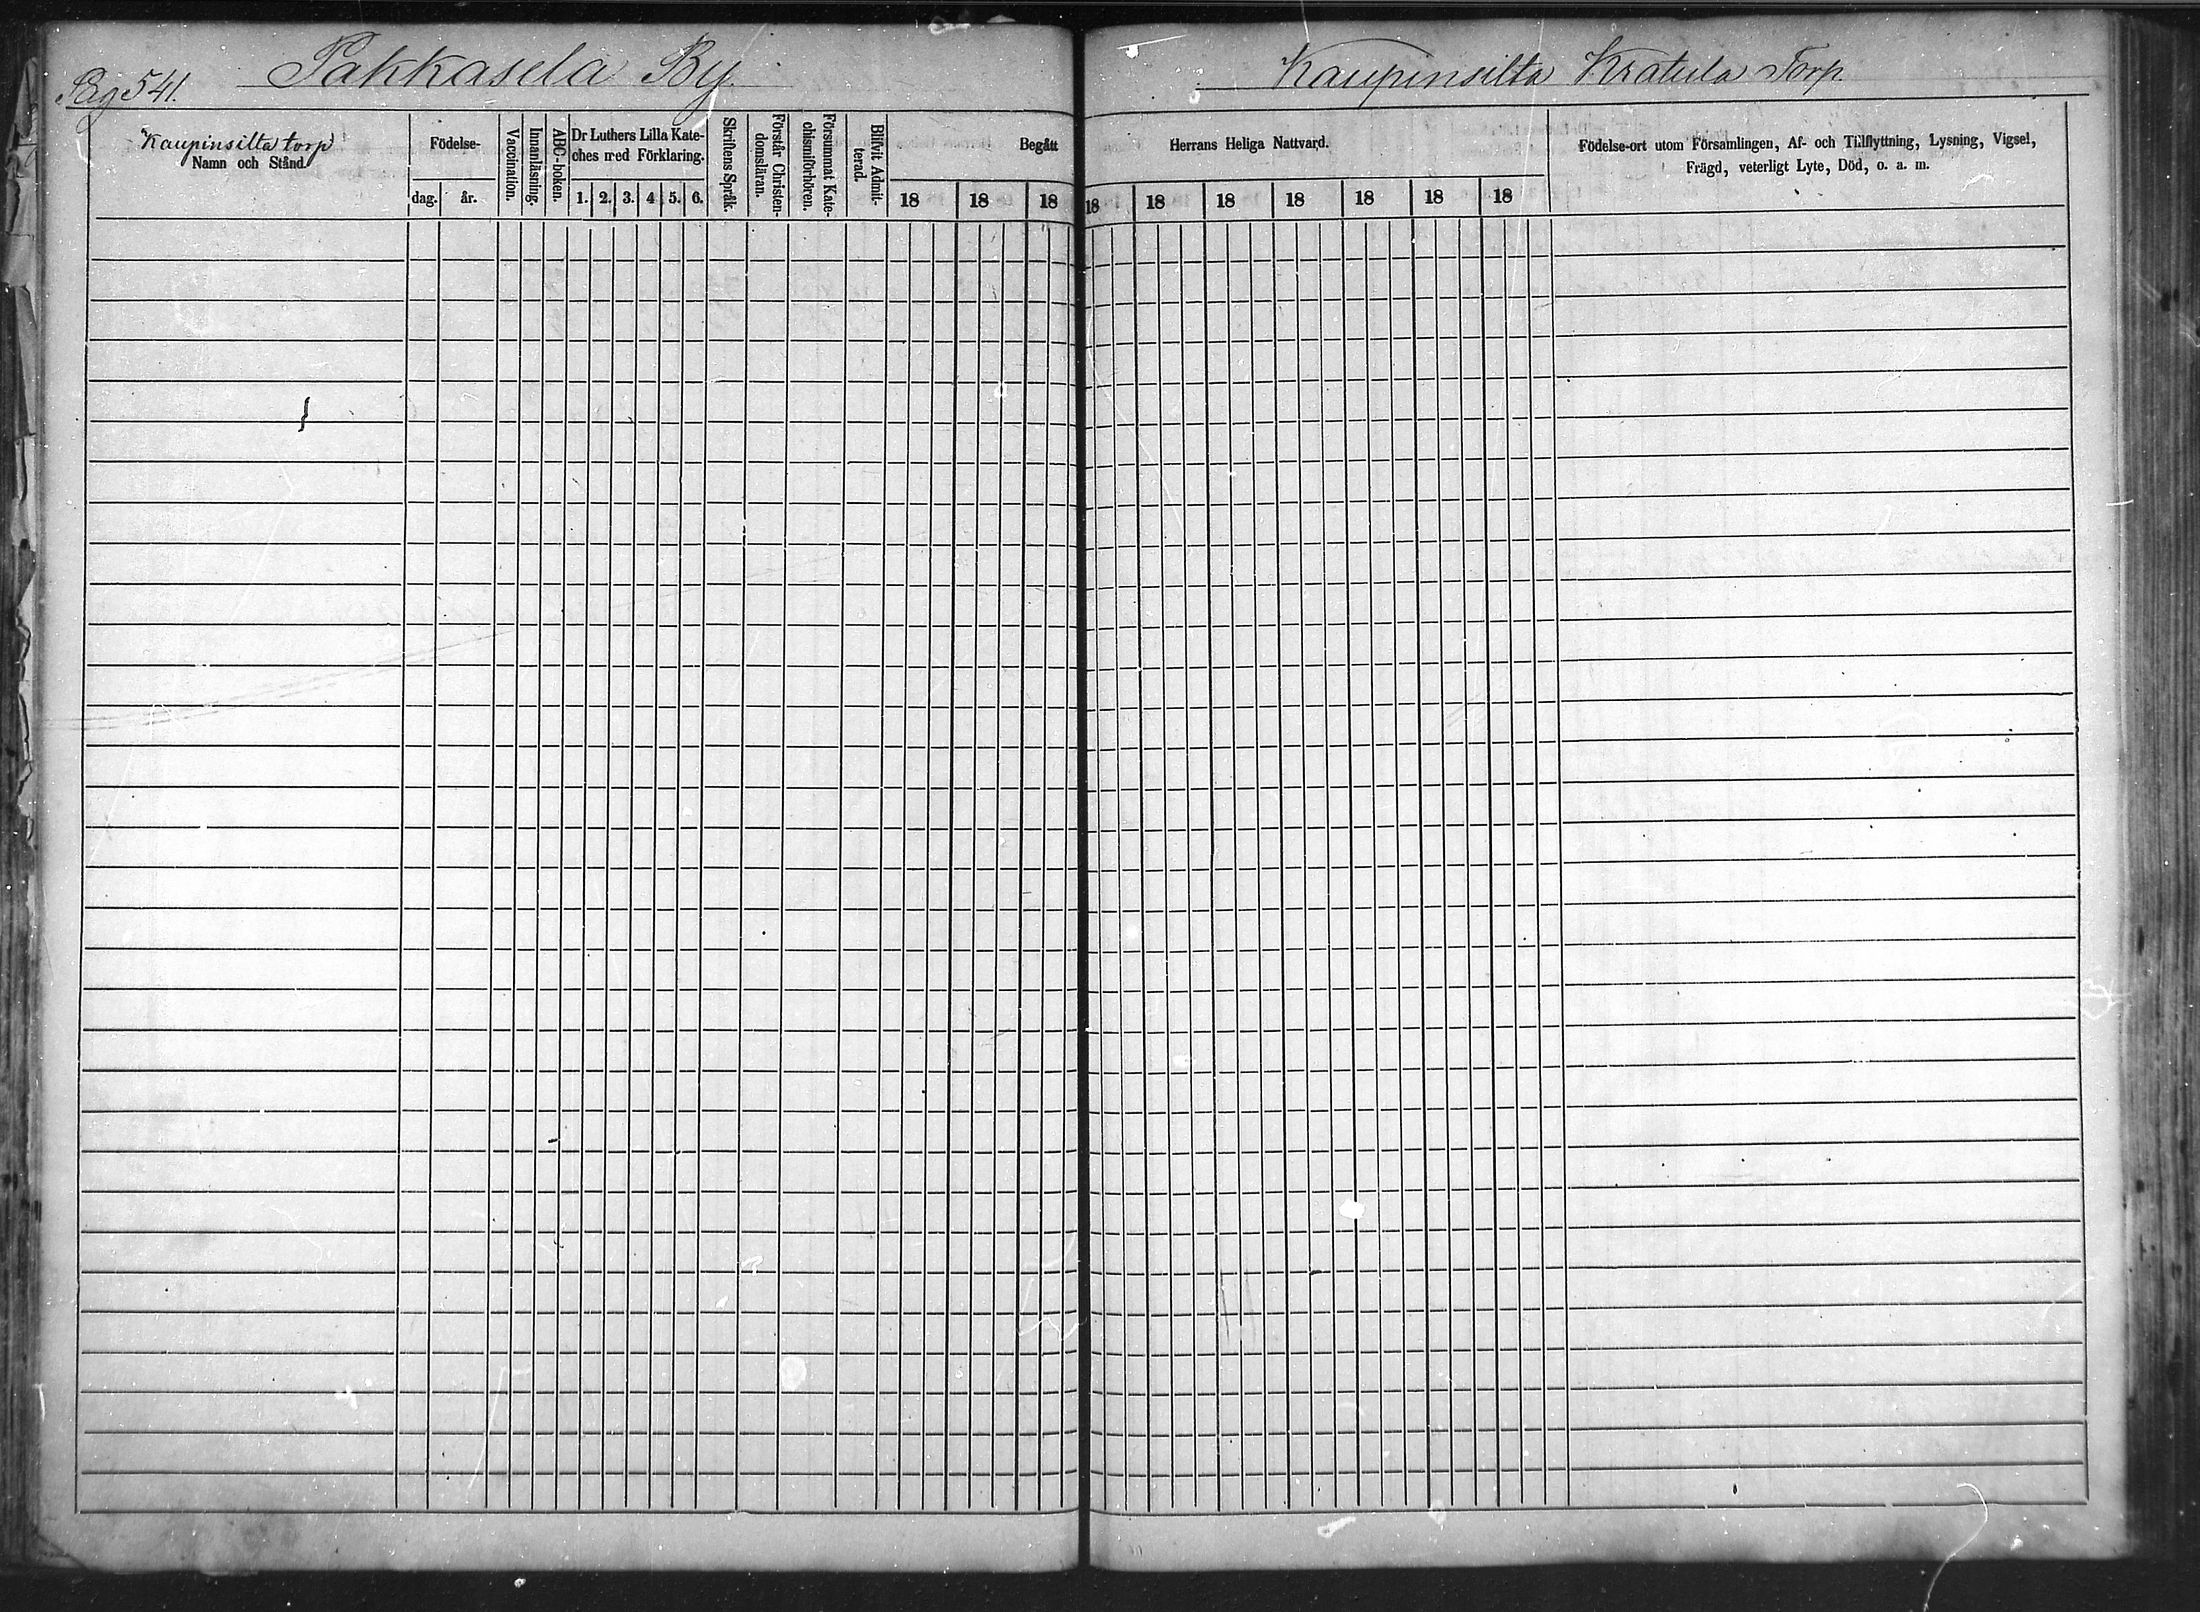 Pag 541.
Pakkasela By
Kaupinsilta Kratula Torp
Kaupinsilta torp
Namn och Stånd.
Födelse-
dag.
år.
Vaccination.
Innanläsning.
ABC-boken.
Dr Luthers Lilla Kate-
ches med Förklaring.
1. 2. 3. 4. 5. 6.
Skriftens Språk.
Förstår Christen-
domsläran.
Försummat Kate-
chismiförhören.
Blifvit Admit-
terad.
Begått
18 18 18
Herrans Heliga Nattvard.
18 18 18 18 18 18 18
Födelse-ort utom Församlingen, Af- och Tillflyttning, Lysning, Vigsel,
Frägd, veterligt Lyte, Död, o. a. m.